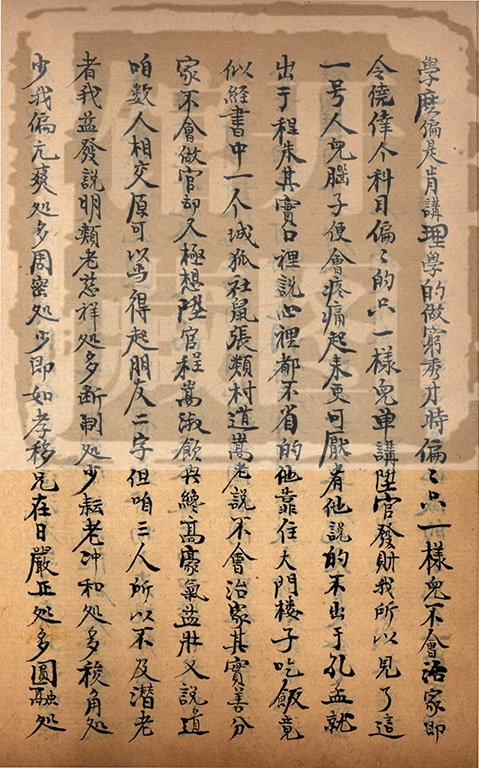 學麽偏是肯講理學的做窮秀才時偏〻只一樣兒不會治家即
令僥倖个科目偏〻的只一樣兒單講陞官發財我所以見了這
一号人兒腦子便會疼痛起来更可厭者他說的不出于孔孟就
出于程朱其實口裡說心裡都不省的他靠住大門楼子吃飯竟
似經書中一个城狐社鼠張類村道嵩老說不會治家其實善分
家不會做官却又極想陞官程嵩淑飲興纔高豪氣益壯又說道
咱数人相交原可以当得起朋友二字但咱三人所以不及潜老
者我益發說明類老慈祥処多断制処少耘老冲和処多稜角処
少我偏亢爽処多周密処少即如孝移兄在日嚴正処多圓融処